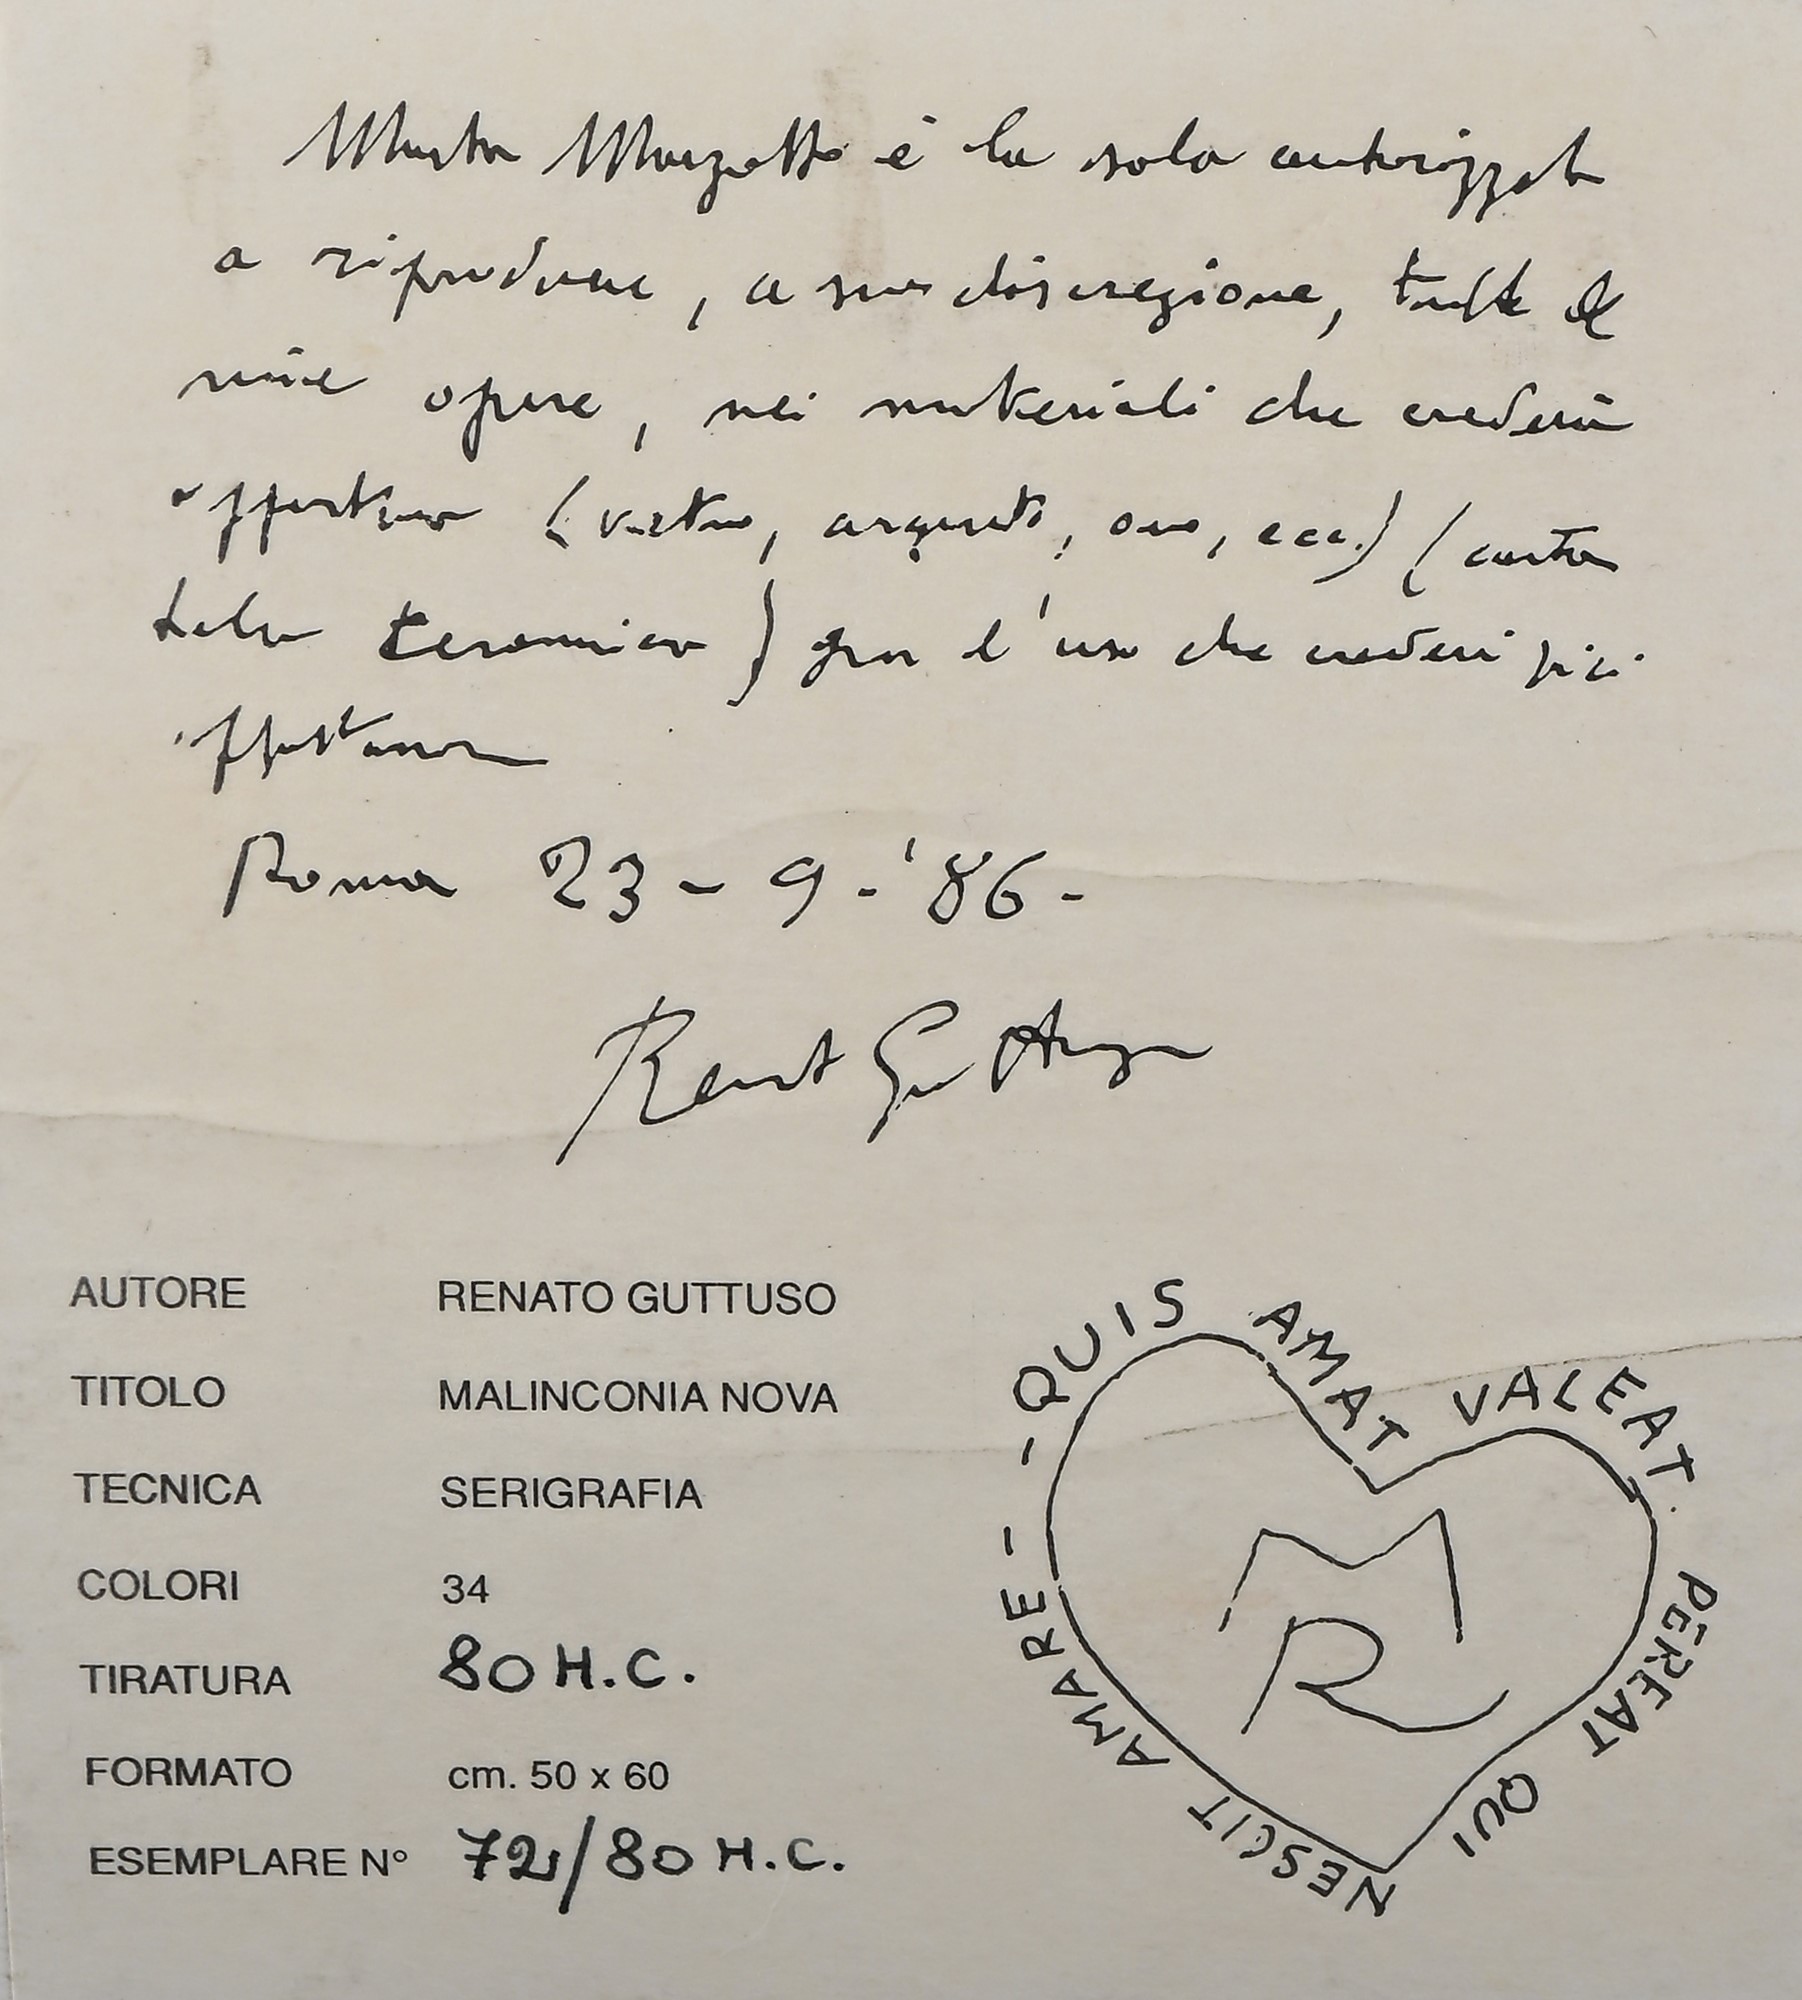 Marta Marzotto è la sola autorizzata
a riprodurre, a sua discrezione, tutte le
mie opere, nei materiali che crederà
opportuno (vetro, argento, oro, ecc.) (carta
tela ceramica) per l'uso che crederà più
opportuno
Roma 23-9-'86-
Renato Guttuso
AUTORE RENATO GUTTUSO
TITOLO MALINCONIA NOVA
TECNICA SERIGRAFIA
COLORI 34
TIRATURA 80 H.C.
FORMATO cm. 50 x 60
ESEMPLARE N° 72/80 H.C.
- QUIS AMAT VALEAT. PEREAT QUI NESCIT AMARE -
M
R